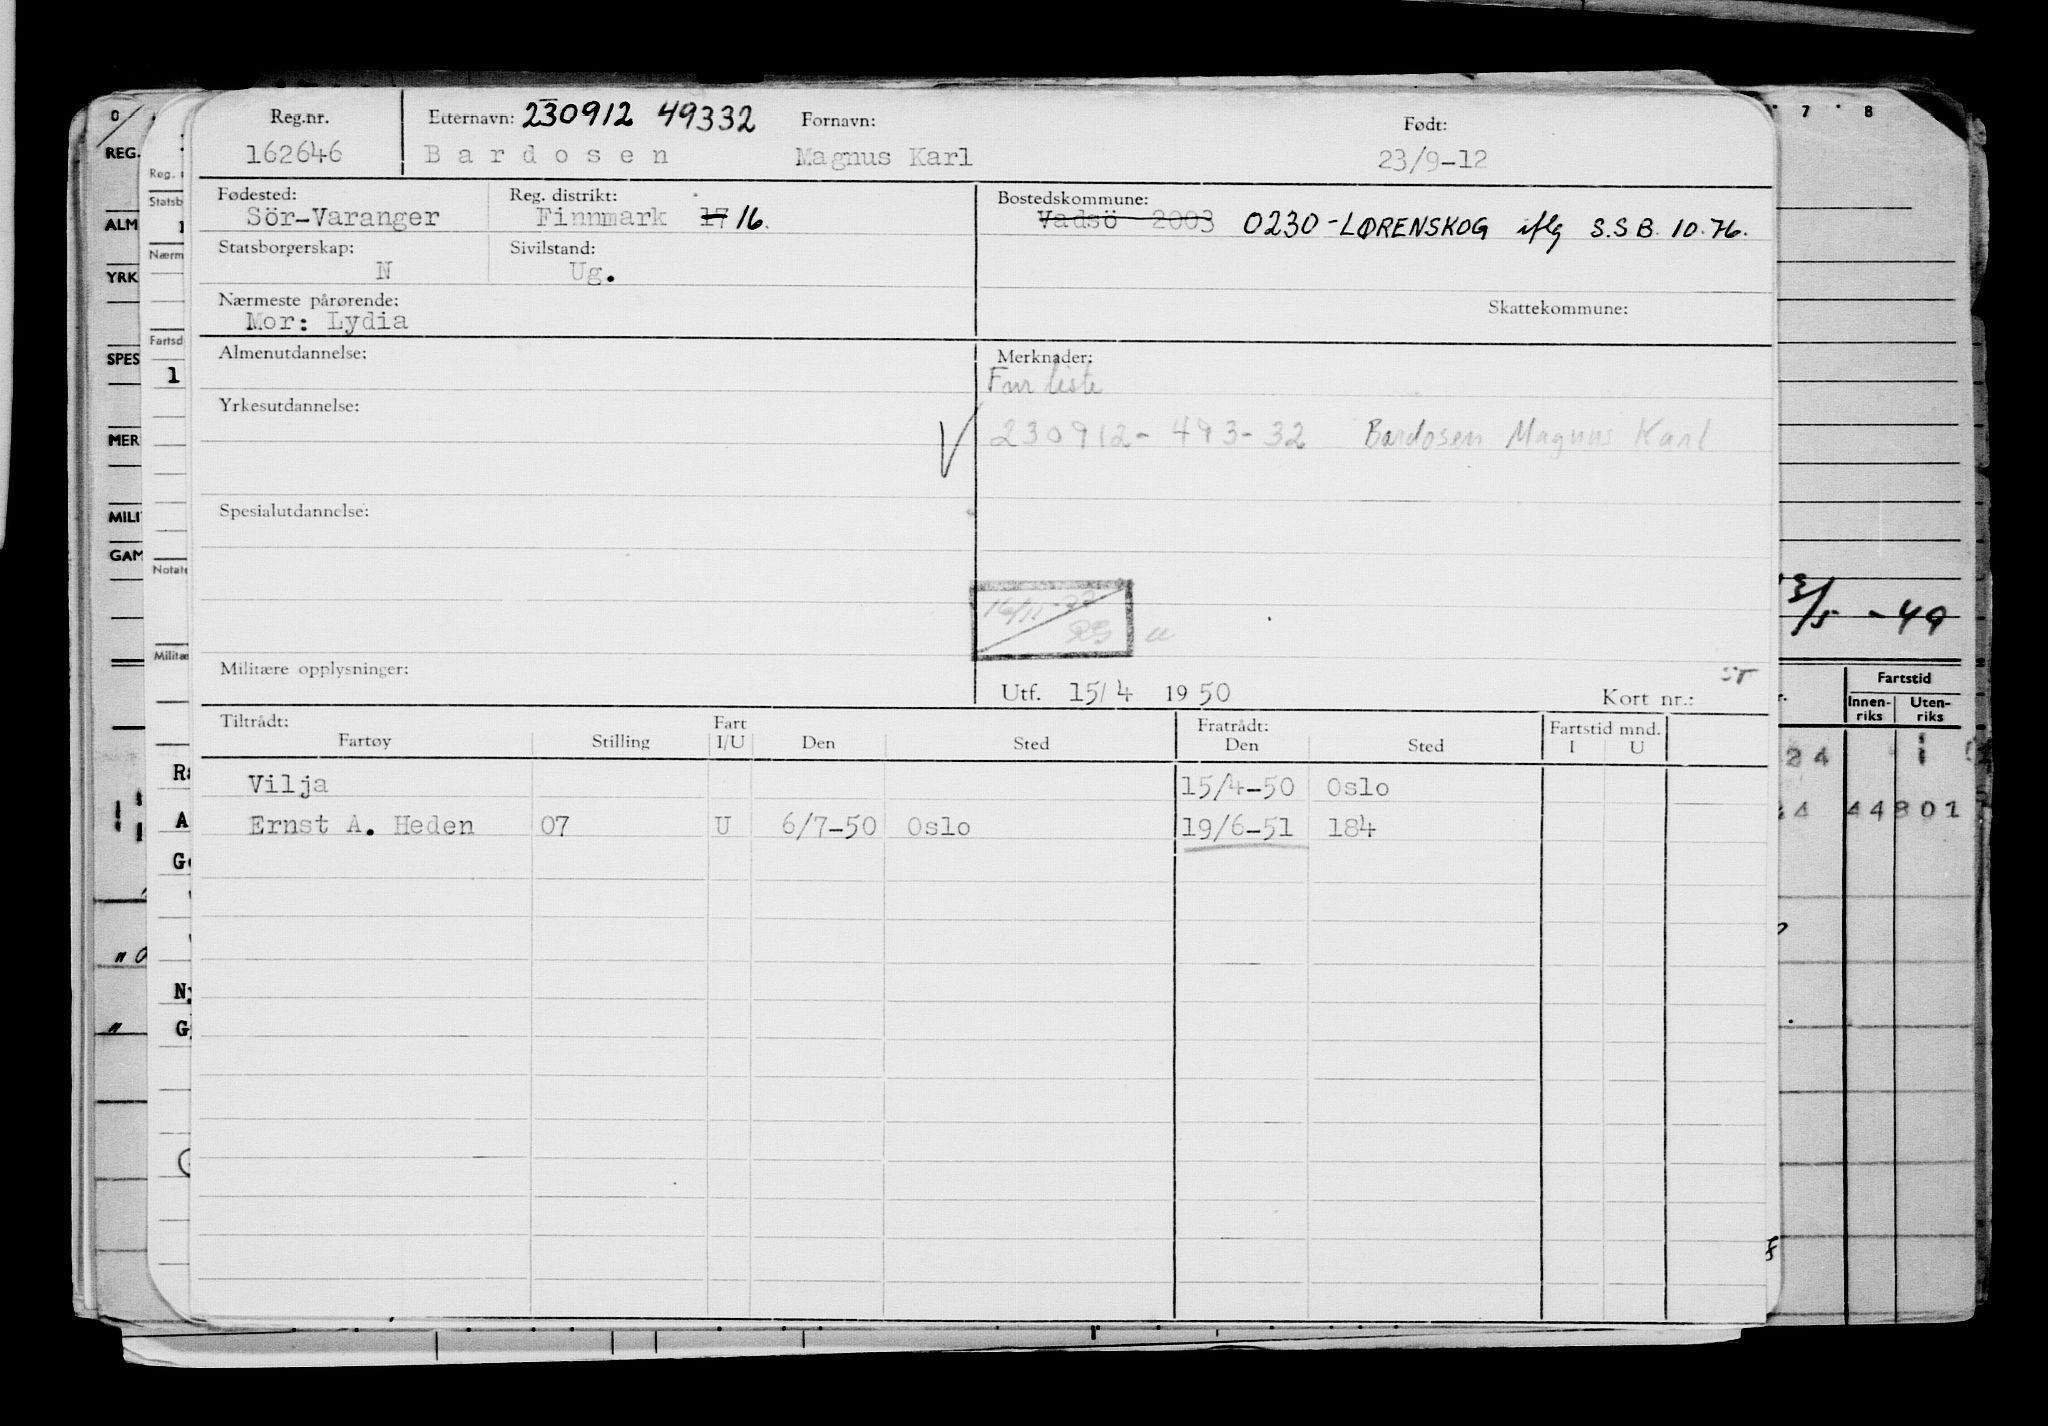 Reg.nr. Etternavn: 230912 49332 Fornavn: Født:
162646 Bardosen Magnus Karl 23/9-12
Fødested: Reg. distrikt: Bostedskommune:
Sör-Varanger Finnmark 17 16. Vadsö 2003 0230-LØRENSKOG iflg S.S.B. 10.76.
Statsborgerskap: Sivilstand:
N Ug.
Nærmeste pårørende: Skattekommune:
Mor: Lydia
Almenutdannelse: Merknader:
Fnr liste
Yrkesutdannelse:
230912-493-32 Bardosen Magnus Karl
Spesialutdannelse:
Militære opplysninger:
Utf. 15/4 1950 Kort nr.:
Tiltrådt: Fart Fratrådt: Fartstid mnd.
Fartøy Stilling I/U Den Sted Den Sted I U
Vilja 15/4-50 Oslo
Ernst A. Heden 07 U 6/7-50 Oslo 19/6-51 184
O
REG.
ALM
YRK
SPES
MER
MILI
GAM
Reg.
Statsb
Nærm
Fartsd
1
Notate
Militæ
A
G
7 8
3/5 -49
Fartstid
Innen-riks Uten-riks
24 1
44801